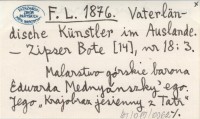 F. L. 1876. Vaterlän-
dische Künstler im Auslande.
— Zipser Bote [14], nr 18: 3.
Malarstwo górskie barona
Edwarda Mednyánszky'ego.
Jego „Krajobraz jesienny z Tatr"